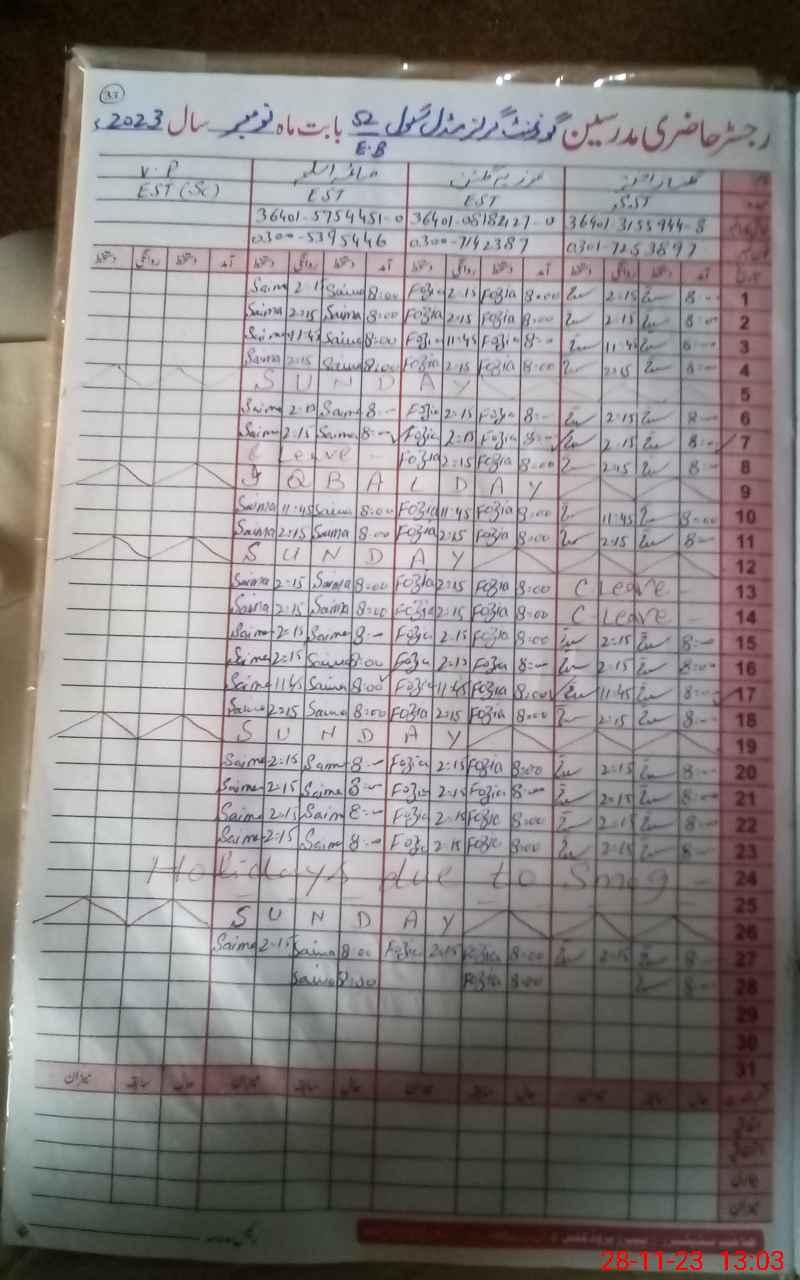 35
رجسٹر حاضری مدرسین گورنمنٹ گرلز مڈل سکول 52/E.B بابت ماہ نومبر سال 2023ء
نام V.P
عہدہ SST EST EST EST (Sc)
36401-3155944-8 36401-0818227-0 36401-5754451-0
0301-7253897 0300-7142387 0300-5395446
تاریخ آمد دستخط روانگی دستخط آمد دستخط روانگی دستخط آمد دستخط روانگی دستخط آمد دستخط روانگی دستخط
1 8:00 2:15 8:00 Fozia 2:15 Fozia 8:00 Saima 2:15 Saima
2 8:00 2:15 8:00 Fozia 2:15 Fozia 8:00 Saima 2:15 Saima
3 8:00 11:45 8:00 Fozia 11:45 Fozia 8:00 Saima 11:45 Saima
4 8:00 2:15 8:00 Fozia 2:15 Fozia 8:00 Saima 2:15 Saima
5 SUNDAY
6 8:00 2:15 8:00 Fozia 2:15 Fozia 8:00 Saima 2:15 Saima
7 8:00 2:15 8:00 Fozia 2:15 Fozia 8:00 Saima 2:15 Saima
8 8:00 2:15 8:00 Fozia 2:15 Fozia C Leave
9 IQBAL DAY
10 8:00 11:45 8:00 Fozia 11:45 Fozia 8:00 Saima 11:45 Saima
11 8:00 2:15 8:00 Fozia 2:15 Fozia 8:00 Saima 2:15 Saima
12 SUNDAY
13 C Leave 8:00 Fozia 2:15 Fozia 8:00 Saima 2:15 Saima
14 C Leave 8:00 Fozia 2:15 Fozia 8:00 Saima 2:15 Saima
15 8:00 2:15 8:00 Fozia 2:15 Fozia 8:00 Saima 2:15 Saima
16 8:00 2:15 8:00 Fozia 2:15 Fozia 8:00 Saima 2:15 Saima
17 8:00 11:45 8:00 Fozia 11:45 Fozia 8:00 Saima 11:45 Saima
18 8:00 2:15 8:00 Fozia 2:15 Fozia 8:00 Saima 2:15 Saima
19 SUNDAY
20 8:00 2:15 8:00 Fozia 2:15 Fozia 8:00 Saima 2:15 Saima
21 8:00 2:15 8:00 Fozia 2:15 Fozia 8:00 Saima 2:15 Saima
22 8:00 2:15 8:00 Fozia 2:15 Fozia 8:00 Saima 2:15 Saima
23 8:00 2:15 8:00 Fozia 2:15 Fozia 8:00 Saima 2:15 Saima
24 Holidays due to Smog
25
26 SUNDAY
27 8:00 2:15 8:00 Fozia 2:15 Fozia 8:00 Saima 2:15 Saima
28 8:00 8:00 Fozia 8:00 Saima
29
30
31
حال سابقہ میزان حال سابقہ میزان حال سابقہ میزان حال سابقہ میزان
اتفاقی
بیماری
میزان
28-11-23 13:03